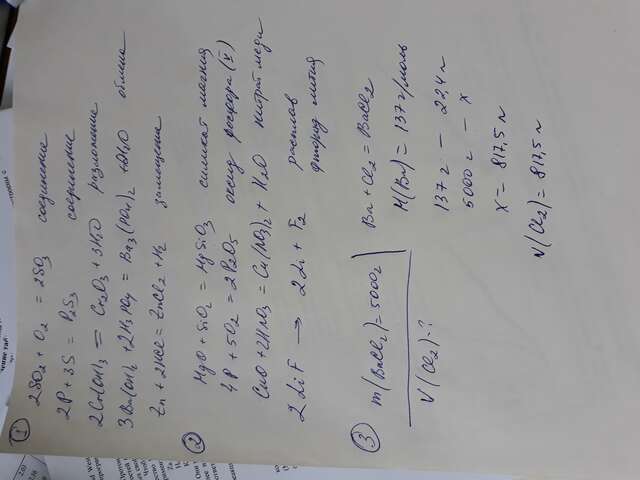 ①
2SO₂ + O₂ = 2SO₃ соединение
2P + 3S = P₂S₃ соединение
2Cr(OH)₃ = Cr₂O₃ + 3H₂O разложение
3Ba(OH)₂ + 2H₃PO₄ = Ba₃(PO₄)₂ + 6H₂O обмена
Zn + 2HCl = ZnCl₂ + H₂ замещение
②
MgO + SiO₂ = MgSiO₃ силикат магния
4P + 5O₂ = 2P₂O₅ оксид фосфора (V)
CuO + 2HNO₃ = Cu(NO₃)₂ + H₂O нитрат меди
2LiF → 2Li + F₂ расплав
фторид лития
③
m(BaCl₂) = 5000г
V(Cl₂) - ?
Ba + Cl₂ = BaCl₂
M(Ba) = 137 г/моль
137 г — 22,4 л
5000 г — x
x = 817,5 л
V(Cl₂) = 817,5 л